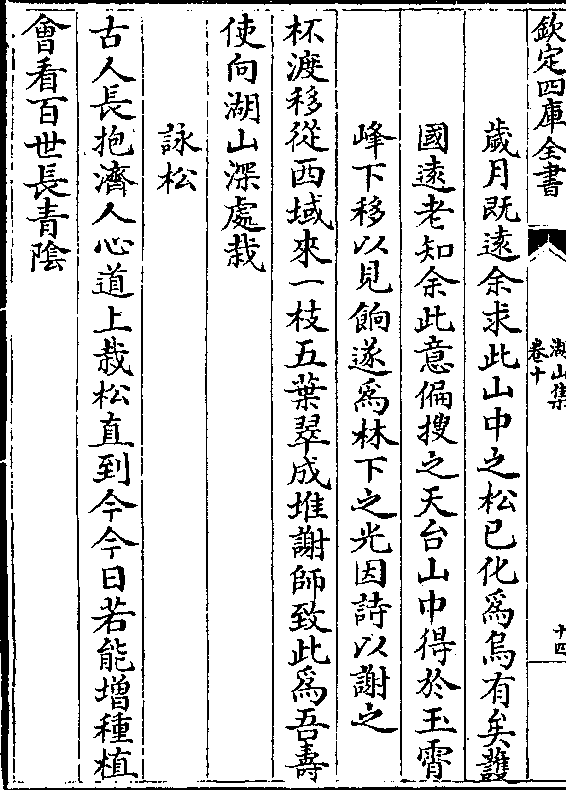 欽定四庫全書
湖山集
卷十
十四
歲月既遠余求此山中之松已化爲烏有矣護
國遠老知余此意偏搜之天台山中得於玉霄
峰下移以見餉遂爲林下之光因詩以謝之
杯渡移從西域來一枝五葉翠成堆謝師致此爲吾壽
使向湖山深處栽
詠松
古人長抱濟人心道上栽松直到今今日若能增種植
會看百世長青陰